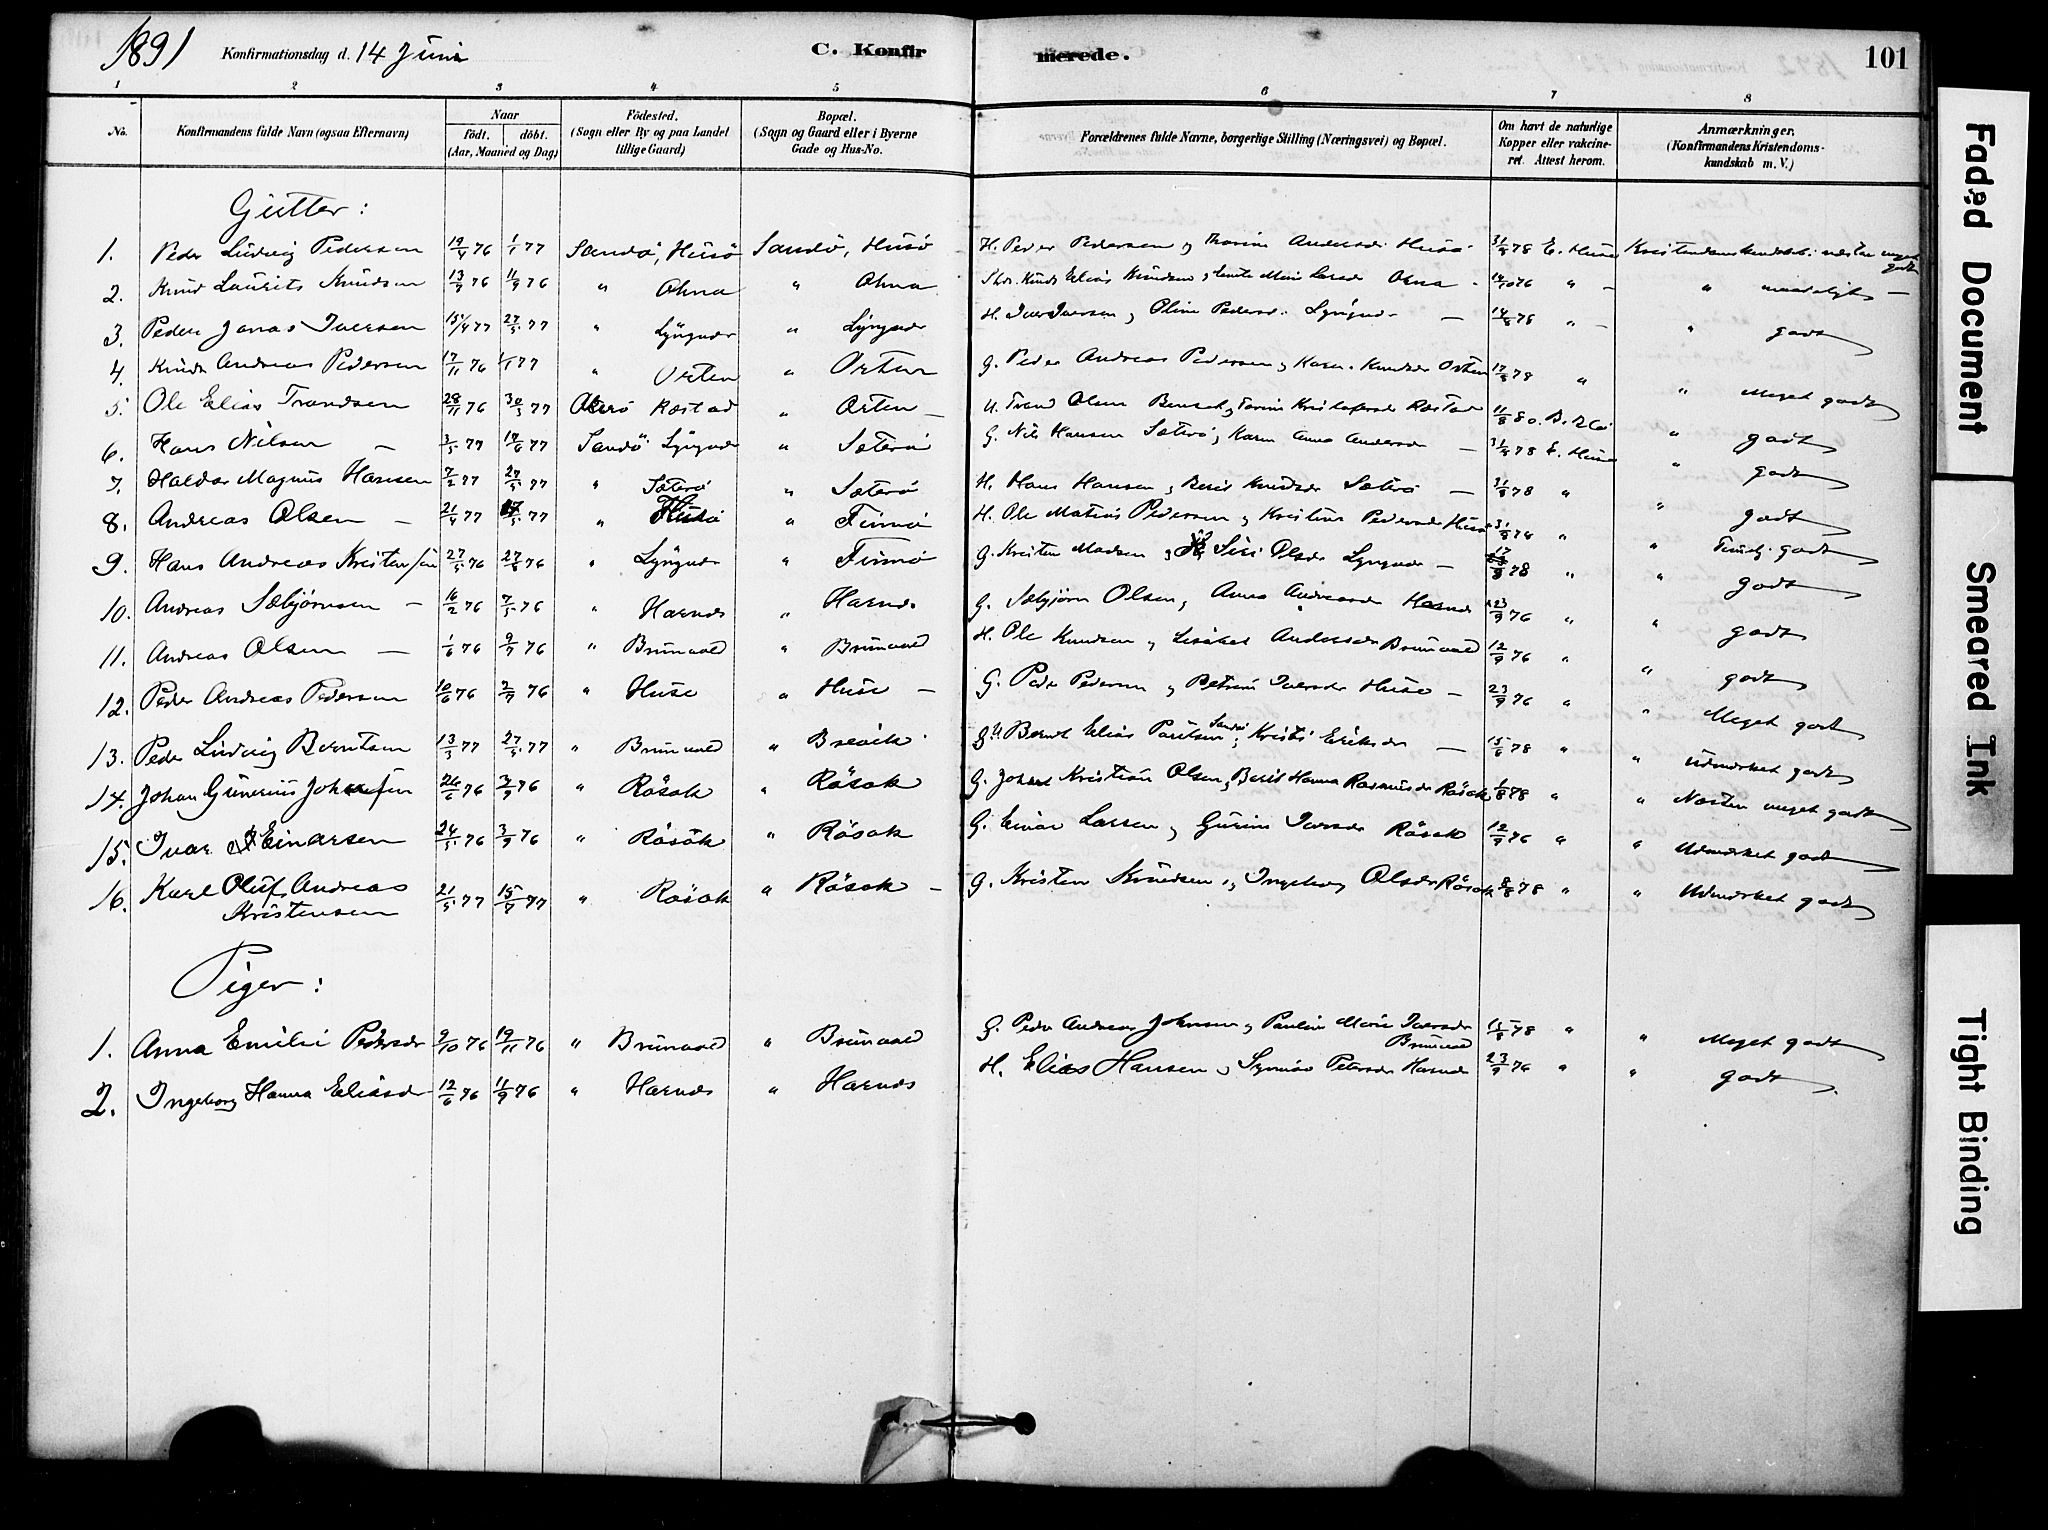 1891 Konfirmationsdag d. 14 Juni C. Konfir merede. 101
1 2 3 4 5 6 7 8
No. Konfirmandens fulde Navn (ogsaa Efternavn) Naar födt. döbt. (Aar, Maaned og Dag) Födested. (Sogn eller By og paa Landet tillige Gaard) Bopæl. (Sogn og Gaard eller i Byerne Gade og Hus-No. Forældrenes fulde Navne, borgerlige Stilling (Næringsvei) og Bopæl. Om havt de naturlige Kopper eller vakcineret. Attest herom. Anmærkninger. (Konfirmandens Kristendomskundskab m. V.)
Gutter:
1. Peder Ludvig Pedersen 19/4 76 1/1 77 Sandö, Husö Sandö, Husö H. Peder Pedersen og Andersdr Husö 31/8 78 Kristendomskundskab: næsten meget godt
2. Knud Laurits Knudsen 13/7 76 11/9 76 " Ohna " Ohna Knud Elias Knudsen Ohna 14/10 76 " " maadeligt
3. Peder Jonas Iversen 15/4 77 27/5 77 " Lyngvær " Lyngvær H. Iver Iversen og Oline Pedersd. Lyngvær 14/8 78 " " godt
4. Knud Andreas Pedersen 17/11 76 1/1 77 " Orten " Orten G. Peder Andreas Pedersen og Karen Knudsdr Orten 17/8 78 " " Meget godt
5. Ole Elias Trondsen 28/11 76 30/3 77 Akerö Røstad " Orten U. Trond Olsen og Kristofersdr Røstad 11/8 80 " godt
6. Hans Nilsen 3/5 77 17/6 77 Sandö Lyngvær " Sæterö G. Nils Hansen Sæterö og Karen Anna Andersdr 31/8 78 " godt
7. Haldor Magnus Hansen 7/2 77 27/5 77 " Sæterö " Sæterö H. Hans Hansen og Berit Knudsdr Sæterö 31/8 78 " " godt
8. Andreas Olsen 21/4 77 /5 77 " Husö " Finnö H. Ole Matias Pedersen og Kristine Pedersdr Husö 31/8 78 " " Temlg. godt
9. Hans Andreas Kristensen 27/5 76 27/8 76 " Lyngvær " Finnö G. Kristen Madsen og Siri Olsdr Lyngvær 17/8 78 " " godt
10. Andreas Sæbjörnsen 16/2 76 7/5 76 " Harnes " Harnes G. Sæbjörn Olsen og Anna Andreasdr Harnes 23/9 76 " " godt
11. Andreas Olsen 1/6 76 9/7 76 " Brunvold " Brunvold H. Ole Knudsen og Lisabet Andersdr Brunvold 12/9 76 " " godt
12. Peder Andreas Pedersen 10/6 76 2/7 76 " Huse " Huse G. Peder Pedersen og Petrine Iversdr Huse 23/9 76 " " Meget godt
13. Peder Ludvig Berntsen 13/3 77 27/5 77 " Brunvold " Brevik Bernt Elias Paulsen Sandö og Kristi Eriksdr 15/6 78 " " Udmærket godt
14. Johan Gunerius Johansen 26/6 76 3/9 76 " Rösok " Rösok G. Johan Kristian Olsen og Berit Hanna Rasmusdr Rösok 1/8 78 " " Næsten meget godt
15. Ivar Einarsen 24/5 76 3/9 76 " Rösok " Rösok G. Einar Larsen og Gurine Iversdr Rösok 12/9 76 " " Udmærket godt
16. Karl Oluf Andreas Kristensen 21/5 77 15/7 77 " Rösok " Rösok G. Kristen Knudsen og Ingeborg Olsdr Rösok 8/8 78 " " Udmærket godt
Piger:
1. Anna Emilie Pedersdr 9/10 76 19/11 76 " Brunvold " Brunvold G. Peder Andreas Johnsen og Pauline Marie Iversdr Brunvold 15/8 78 " " Meget godt
2. Ingeborg Hanna Eliasdr 12/6 76 11/9 76 " Harnes " Harnes H. Elias Hansen og Synnöv Petersdr Harnes 23/9 76 " " godt
Faded Document
Smeared Ink
Tight Binding